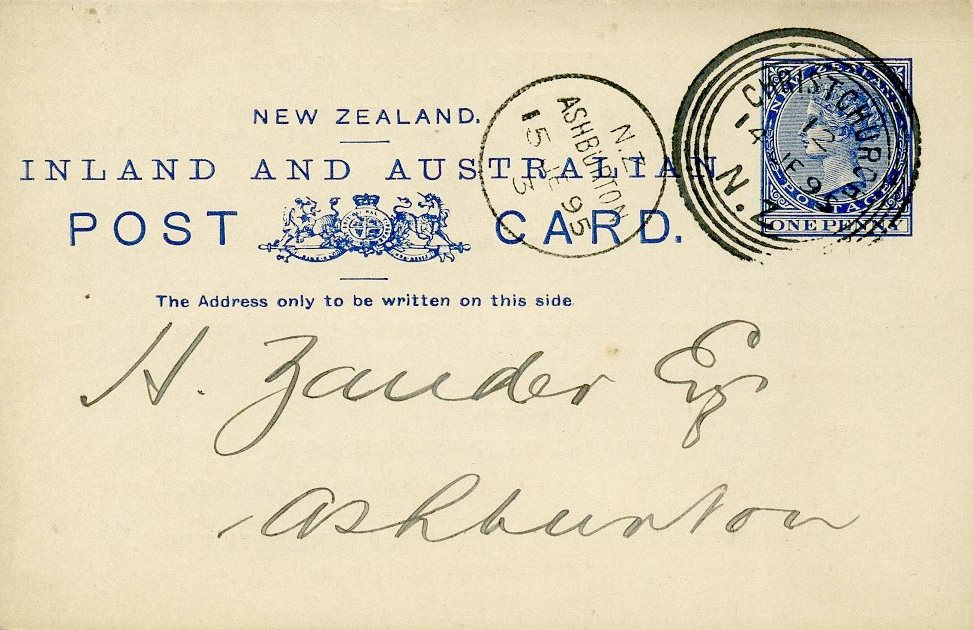 NEW ZEALAND.
INLAND AND AUSTRALIAN
POST CARD.
The Address only to be written on this side
N.Z
ASHBURTON
15 95
3
CHRISTCHURCH
12
14 9
N.Z
NEW ZEALAND
POSTAGE
ONE PENNY
H. Zander Esq
Ashburton